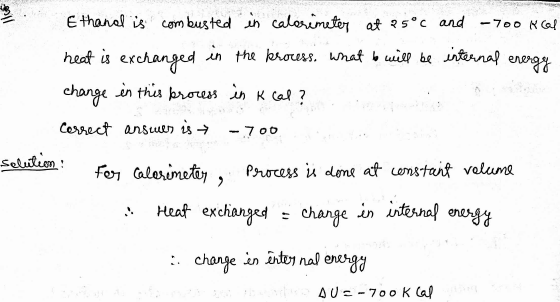 Ethanol is combusted in calorimeter at 25°C and -700 KCal
heat is exchanged in the process. What will be internal energy
change in this process in K Cal?
Correct answer is → -700
Solution:
For Calorimeter, Process is done at constant volume
∴ Heat exchanged = change in internal energy
∴ change in internal energy
ΔU = -700 K Cal